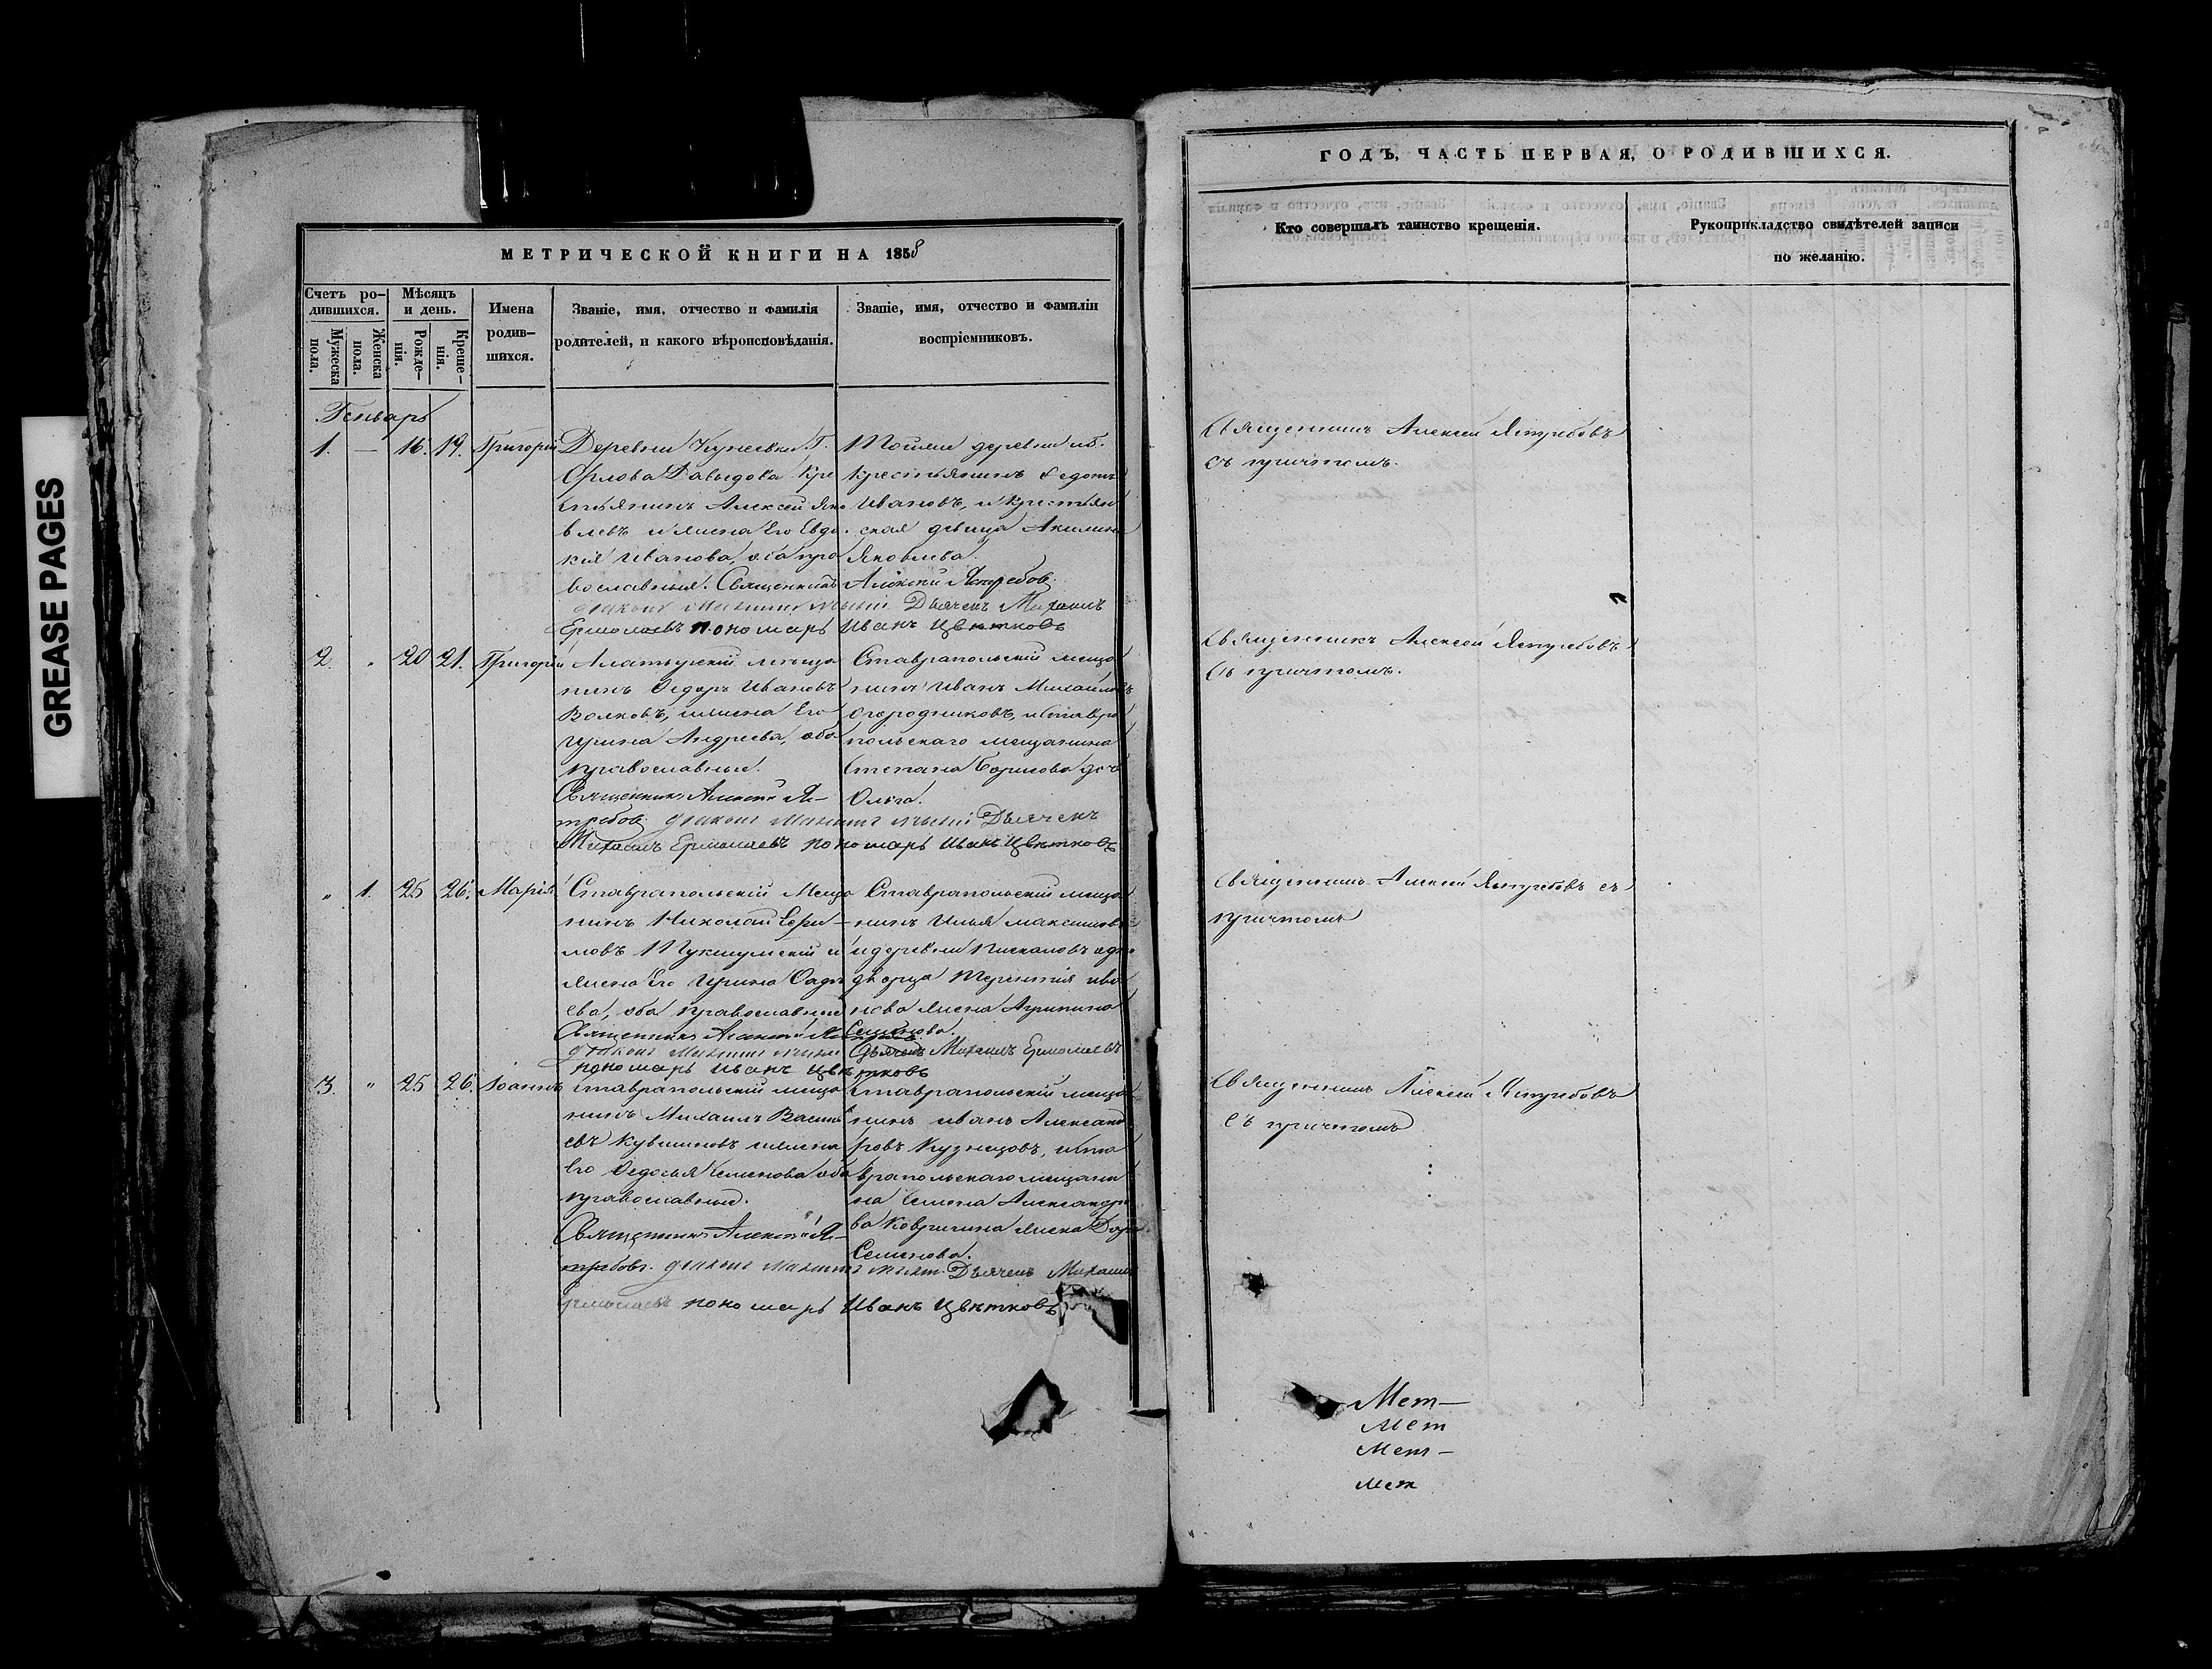 GREASE PAGES
МЕТРИЧЕСКОЙ КНИГИ НА 1858
Счетъ ро-
дившихся.
Мужеска
пола.
Женска
пола.
Мѣсяцъ
и день.
Рожде-
нія.
Креще-
нія.
Имена
родив-
шихся.
Званіе, имя, отчество и фамилія
родителей, и какого вѣроисповѣданія.
Званіе, имя, отчество и фамиліи
воспріемниковъ.
Генварь
1. — 16. 19. Григорій
Деревни Г.
Орлова Давыдова Кре
стьянинъ Алексей Яко
влевъ и жена Его Евдо
кія Иванова, оба пра
вославныя. Священникъ Алексій Ястребовъ
Дьячекъ Михаилъ
Ермолаевъ пономарь Иванъ Цвѣтковъ
Тойже деревни
крестьянинъ Федотъ
Ивановъ, и крестьян
ская девица Акилина
Яковлева.
2. " 20 21. Григорій
Алатырскій меща
нинъ Ѳедоръ Ивановъ
Волковъ, и жена Его
Ирина Андреева, оба
православные.
Священникъ Алексій Я-
стребовъ. Дьячекъ
Михаилъ Ермолаевъ пономарь Иванъ Цвѣтковъ
Ставрапольскій меща
нинъ Иванъ Михайловъ
Огородниковъ, и ставро
польскаго мещанина
Степана Борисова дочь
Ольга.
" 1. 25 26. Марія
Ставрапольскій Меща
нинъ Николай Ефи-
мовъ и
жена Его Ирина
ева, оба православные
Священникъ Алексій
пономарь Иванъ Цвѣтковъ
Ставрапольскій меща
нинъ Илья Максимовъ
и деревни
дворца Терентія Ива
нова жена Агрипина
Семенова.
Дьячекъ Михаилъ Ермолаевъ
3. " 25 26. Іоаннъ
Ставрапольскій меща
нинъ Михаилъ Василь
евъ Кувшиновъ и жена
Его Ѳедосья Семенова оба
православные.
Священникъ Алексій Я-
стребовъ. Дьячекъ Михаилъ
Ермолаевъ пономарь Иванъ Цвѣтковъ
Ставрапольскій меща
нинъ Иванъ Александ
ровъ Кузнецовъ, и ста
врапольскаго мещани
на Семена Александро
ва Ковригина жена Дарья
Семенова.
ГОДЪ, ЧАСТЬ ПЕРВАЯ, О РОДИВШИХСЯ.
Кто совершалъ таинство крещенія.
Рукоприкладство свидѣтелей записи
по желанію.
Священникъ Алексей Ястребовъ
съ причтомъ.
Священникъ Алексей Ястребовъ
съ причтомъ.
Священникъ Алексей Ястребовъ съ
причтомъ
Священникъ Алексей Ястребовъ
съ причтомъ
Мет-
Мет
Мет-
Мет